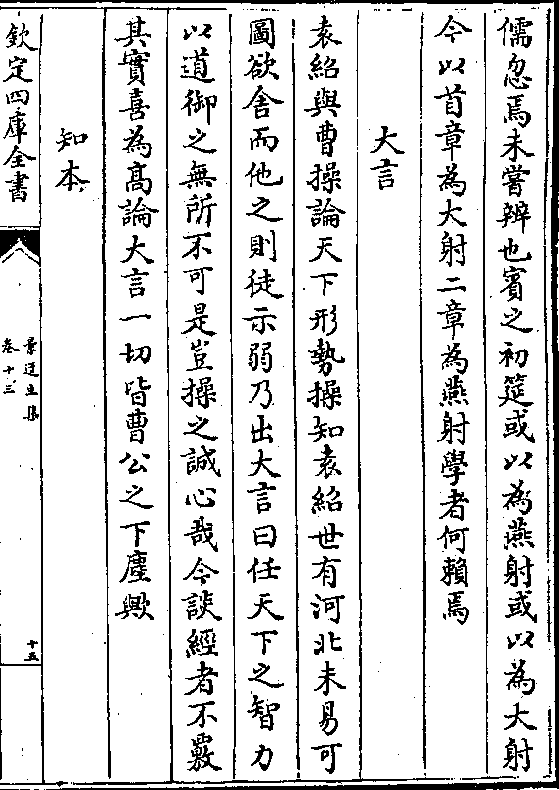 儒忽焉未嘗辨也賓之初筵或以為燕射或以為大射
今以首章為大射二章為燕射學者何賴焉
大言
袁紹與曹操論天下形勢操知袁紹世有河北未易可
圖欲舍而他之則徒示弱乃出大言曰任天下之智力
以道御之無所不可是豈操之誠心哉今談經者不覈
其實喜為髙論大言一切皆曹公之下塵歟
知本
欽定四庫全書
景迂生集
卷十三
十五